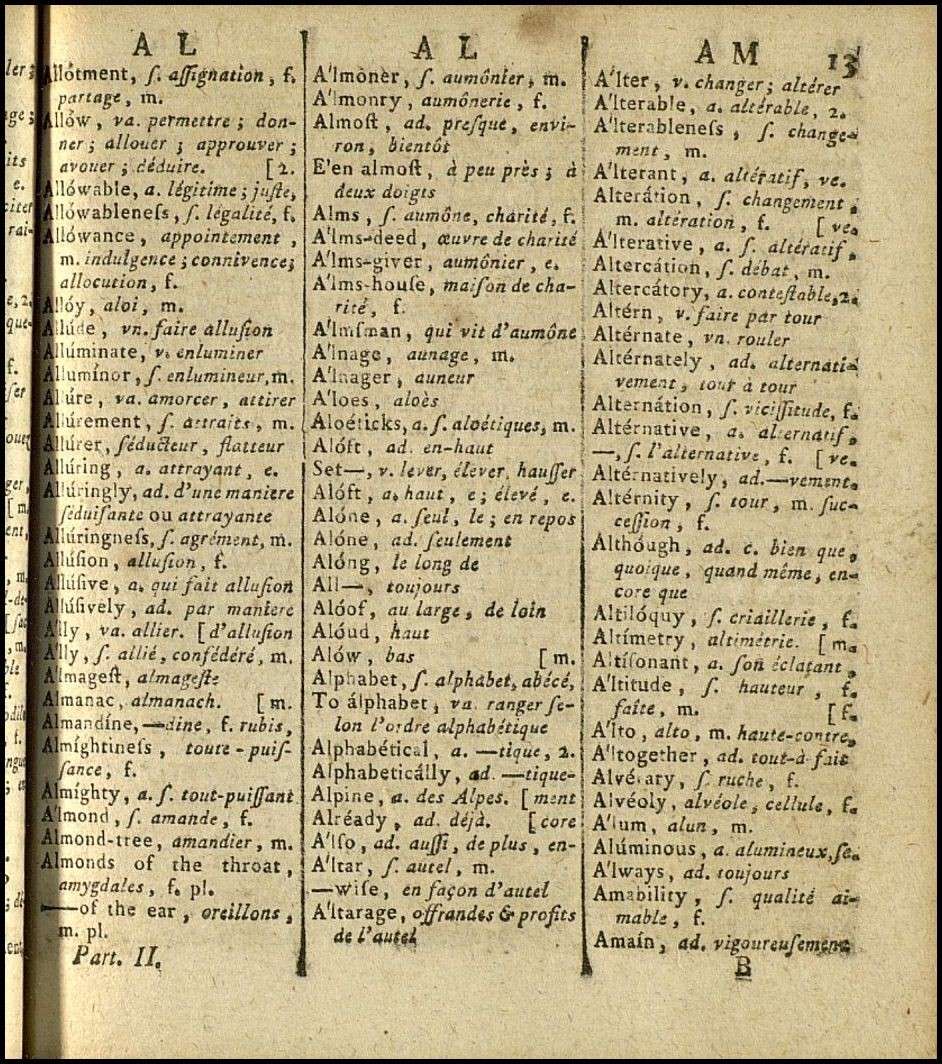 ler;
ge;
its
e.
citer
rai-
e, 2.
que-
f.
ser
ger,
[ m.
ent,
, m.
A L
Allótment, ſ. aſſignation, f.
partage, m.
Allów, va. permettre; don-
ner; allouer; approuver;
avouer; déduire. [2.
Allówable, a. légitime; juſte,
Allówableneſs, ſ. légalité, f.
Allówance, appointement,
m. indulgence; connivence;
allocution, f.
Allóy, aloi, m.
Allúde, vn. faire alluſion
Allúminate, v. enluminer
Allumínor, ſ. enlumineur, m.
Allúre, va. amorcer, attirer
Allúrement, ſ. attraits, m.
Allúrer, ſéducteur, flatteur
Allúring, a. attrayant, e.
Allúringly, ad. d'une maniere
ſéduiſante ou attrayante
Allúringneſs, ſ. agrément, m.
Allúſion, alluſion, f.
Allúſive, a. qui fait alluſion
Allúſively, ad. par maniere
A'lly, va. allier. [d'alluſion
A'lly, ſ. allié, conſédéré, m.
Almageſt, almageſte
Almanac, almanach. [m.
Almandíne, —dine, f. rubis,
Almíghtineſs, toute-puiſ-
ſance, f.
Almíghty, a. ſ. tout-puiſſant
A'lmond, ſ. amande, f.
Almond-tree, amandier, m.
Almonds of the throat,
amygdales, f. pl.
—of the ear, oreillons,
m. pl.
Part. II.
A L
A'lmoner, ſ. aumônier, m.
A'lmonry, aumônerie, f.
Almoſt, ad. preſque, envi-
ron, bientôt
E'en almoſt, à peu près; à
deux doigts
Alms, ſ. aumône, charité, f.
A'lms-deed, œuvre de charité
A'lms-giver, aumônier, e.
A'lms-houſe, maiſon de cha-
rité, f.
A'lmſman, qui vit d'aumône
A'lnage, aunage, m.
A'lnager, auneur
A'loes, aloès
Aloéticks, a. ſ. aloétiques, m.
Alóft, ad. en-haut
Set—, v. lever, élever, hauſſer
Alóft, a. haut, e; élevé, e.
Alóne, a. ſeul, le; en repos
Alóne, ad. ſeulement
Alóng, le long de
All—, toujours
Alóof, au large, de loin
Alóud, haut
Alów, bas [m.
Alphabet, ſ. alphabet, abécé,
To álphabet, va. ranger ſe-
lon l'ordre alphabétique
Alphabétical, a. —tique, 2.
Alphabeticálly, ad. —tique-
Alpine, a. des Alpes. [ment
Alréady, ad. déjà. [core
A'lſo, ad. auſſi, de plus, en-
A'ltar, ſ. autel, m.
—wiſe, en façon d'autel
A'ltarage, offrandes & profits
de l'autel
A M 13
A'lter, v. changer; altérer
A'lterable, a. altérable, 2.
A'lterableneſs, ſ. change-
ment, m.
A'lterant, a. altératif, ve.
Alterátion, ſ. changement,
m. altération, f. [ve.
A'lterative, a. ſ. altératif,
Altercátion, ſ. débat, m.
Altercátory, a. conteſtable, 2.
Altérn, v. faire par tour
Altérnate, vn. rouler
Altérnately, ad. alternati-
vement, tout à tour
Alternátion, ſ. viciſſitude, f.
Altérnative, a. alternatif,
—, ſ. l'alternative, f. [ve.
Altérnatively, ad. —vement.
Altérnity, ſ. tour, m. ſuc-
ceſſion, f.
Althóugh, ad. c. bien que,
quoique, quand même, en-
core que
Altilóquy, ſ. criaillerie, f.
Altímetry, altimétrie. [m.
Altíſonant, a. ſon éclatant,
A'ltitude, ſ. hauteur, f.
faîte, m. [f.
A'lto, alto, m. haute-contre,
A'ltogether, ad. tout-à-fait
Alvéary, ſ. ruche, f.
Alvéoly, alvéole, cellule, f.
A'lum, alun, m.
Alúminous, a. alumineux, ſe.
A'lways, ad. toujours
Amabílity, ſ. qualité ai-
mable, f.
Amaín, ad. vigoureuſement
B